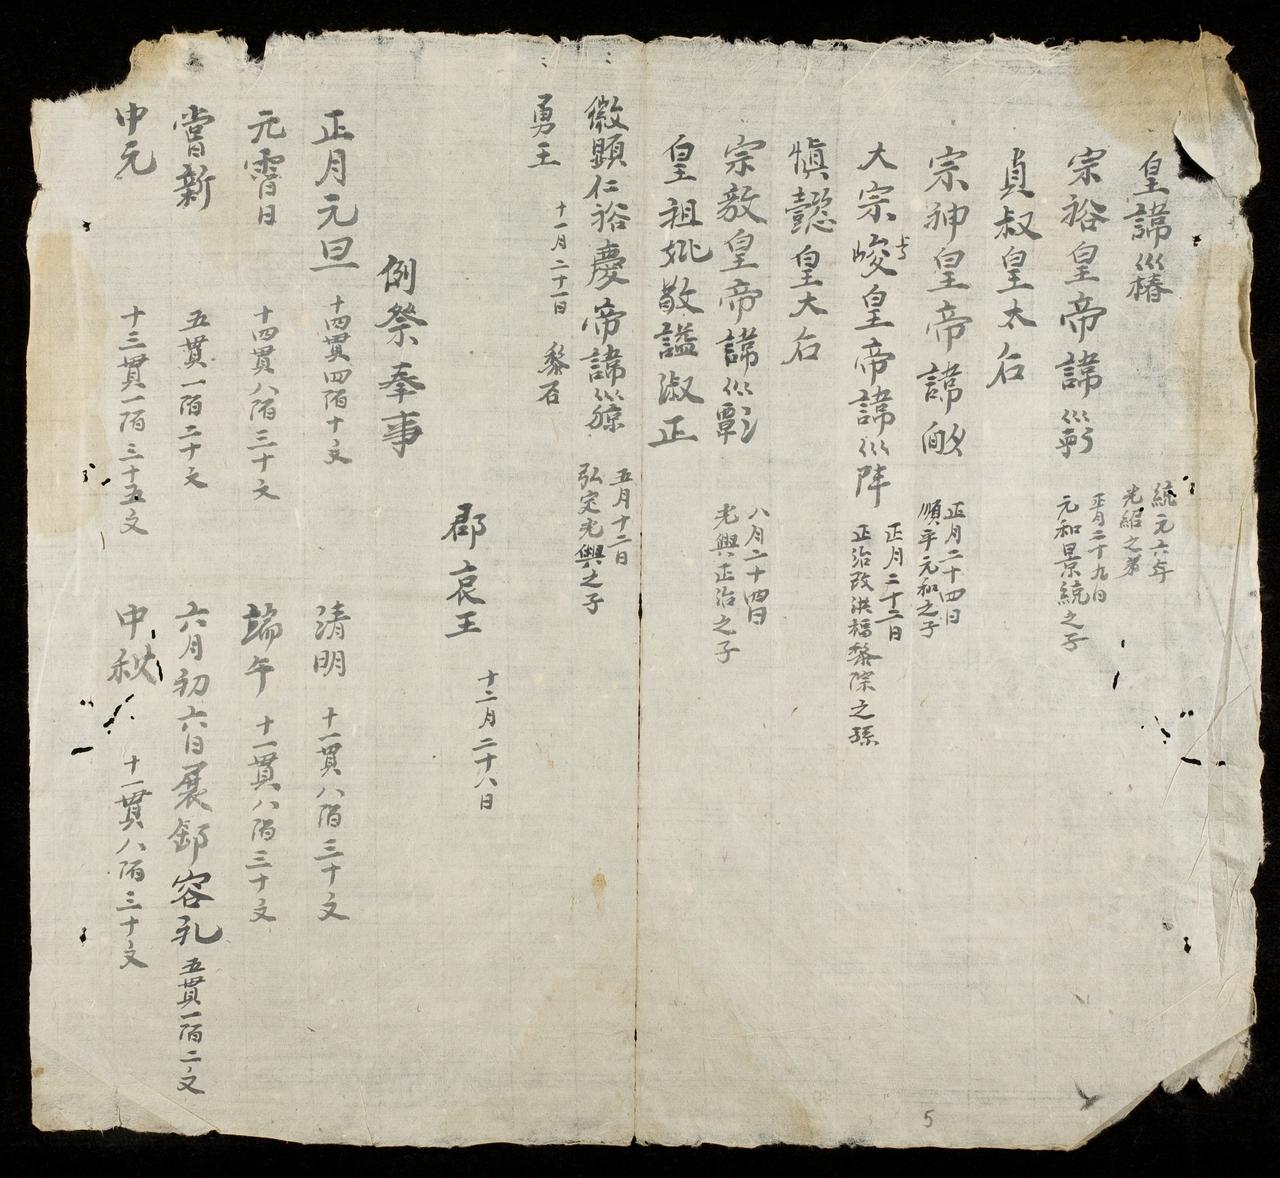 皇諱巛椿 統元六年
光紹之弟
宗裕皇帝諱巛 正月二十九日
元和景統之子
貞叔皇太后
宗神皇帝諱 正月二十四日
順平元和之子
大宗峻皇帝諱巛 正月二十二日
正治改洪福黎除之孫
慎懿皇大后
宗敎皇帝諱巛 八月二十四日
光興正治之子
皇祖妣敬謚淑正
徽顯仁裕慶帝諱巛 五月十二日
弘定光興之子
勇王 十一月二十一日 黎石
郡哀王 十二月二十八日
例祭奉事
正月元旦 十四貫四陌十文 清明 十一貫八陌三十文
元霄日 十四貫八陌三十文 端午 十一貫八陌三十文
嘗新 五貫一陌二十文 六月初六日展卸容礼 五貫一陌二文
中元 十三貫一陌三十五文 中秋 十一貫八陌三十文
5